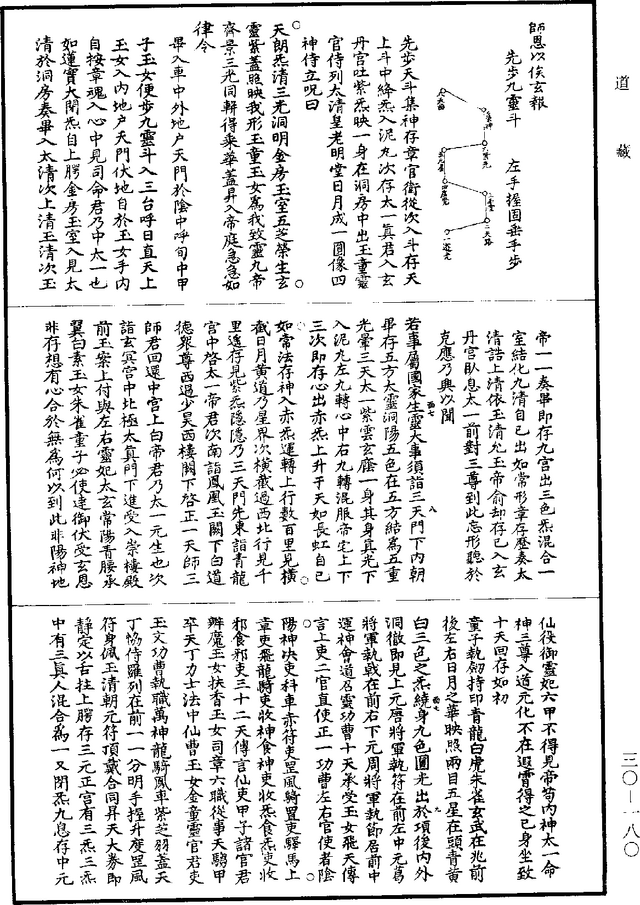 道藏
師恩以俟玄報
先步九靈斗　左手握固垂手步
先步天斗集神存章官衛從次入斗存天
上斗中絳炁入泥丸次存太一真君入玄
丹宮吐紫炁映一身在洞房中出玉童靈
官侍列太清皇老明堂日月成一圓像四
神侍立呪曰
天朗炁清三光洞明金房玉室五芝榮生玄
靈紫蓋照映我形玉童玉女為我致靈九帝
齊景三光同軿得乘華蓋昇入帝庭急急如
律令
畢入車中外地户天門於陰中呼旬中甲
子玉女便步九靈斗入三台呼日直天上
玉女入内地户天門伏地自於玉女手内
自按章魂入心中見司命君乃中太一也
如蓮實大閉炁自上腭金房玉室入見太
清於洞房奏畢入太清次上清玉清次玉
帝一一奏畢即存九宫出三色炁混合一
室結化九清自己出如常形章存歷奏太
清詰上清依玉清允玉帝俞却存已入玄
丹宫臥息太一前對三尊到此忘形聽於
克應乃興以聞
若事屬國家生靈大事須詣三天門下内朝
畢存五方大靈洞陽五色在五方結為五重
光暈三天太一紫雲玄靡一身其身真光下
入泥丸左九轉心中右九轉混服帝宅上下
三次即存心出赤炁上升于天如長虹自已
如常法存神入赤炁運轉上行數百里見橫
截日月黄道乃星界次橫截過西北行見千
里遙存見紫炁隱隱乃三天門先東詣青龍
宫中啓太一帝君次南詣鳳凰玉闕下白道
德衆尊西過少昊西樓闕下啓正一天師三
師君回還中宫上白帝君乃太一元生也次
詣玄冥宫中北極太真門下進受入崇樓殿
前玉案上付與左右靈妃太玄常陽青腰承
翼白素玉女朱雀童子必使達御伏受玄恩
非存想有心合於無為何以到此非陽神地
仙役御靈妃六甲不得見帝苟内神太一命
神三尊入道元化不在遐霄得之已身坐致
十天回存如初
童子執劒持印青龍白虎朱雀玄武在兆前
後左右日月之華映照兩目五星在頭青黄
白三色之炁繞身九色圓光出於項後内外
洞徹即見上元唐將軍執符在前左中元葛
將軍執戟在前右下元周將軍執節居前中
運神會道召靈功曹十天承受玉女飛天傳
言上吏二官直使正一功曹左右官使者陰
陽神决吏科車赤符吏罡風綺置吏驛馬上
章吏飛龍騎吏收神食神吏收炁食炁吏收
邪食邪吏三十二天傳言仙吏甲子諸官君
辟魔玉女扶香玉女司章六職從事天騶甲
卒天丁力士法中仙曹玉女金童靈官君吏
玉文功曹執職萬神龍騎鳳車紫芝羽蓋天
丁恊侍羅列在前一一分明手握升度罡風
符身佩玉清朝元符頂戴合同昇天大券即
静定以舌拄上腭存三元正宫有三炁三炁
中有三真人混合為一又閉炁九息存中元
三〇—一八〇